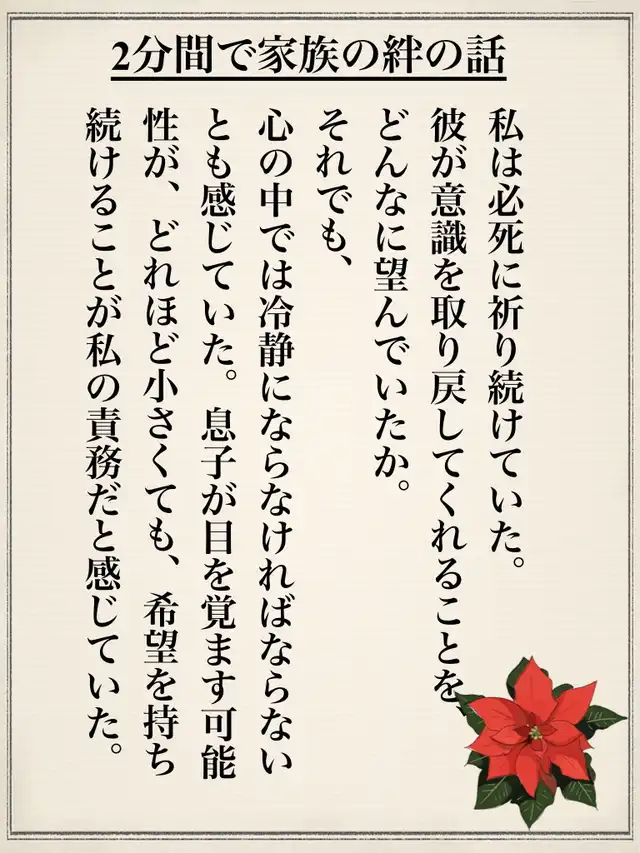 2分間で家族の絆の話
私は必死に祈り続けていた。
彼が意識を取り戻してくれることを
どんなに望んでいたか。
それでも、
心の中では冷静にならなければならない
とも感じていた。息子が目を覚ます可能
性が、どれほど小さくても、希望を持ち
続けることが私の責務だと感じていた。